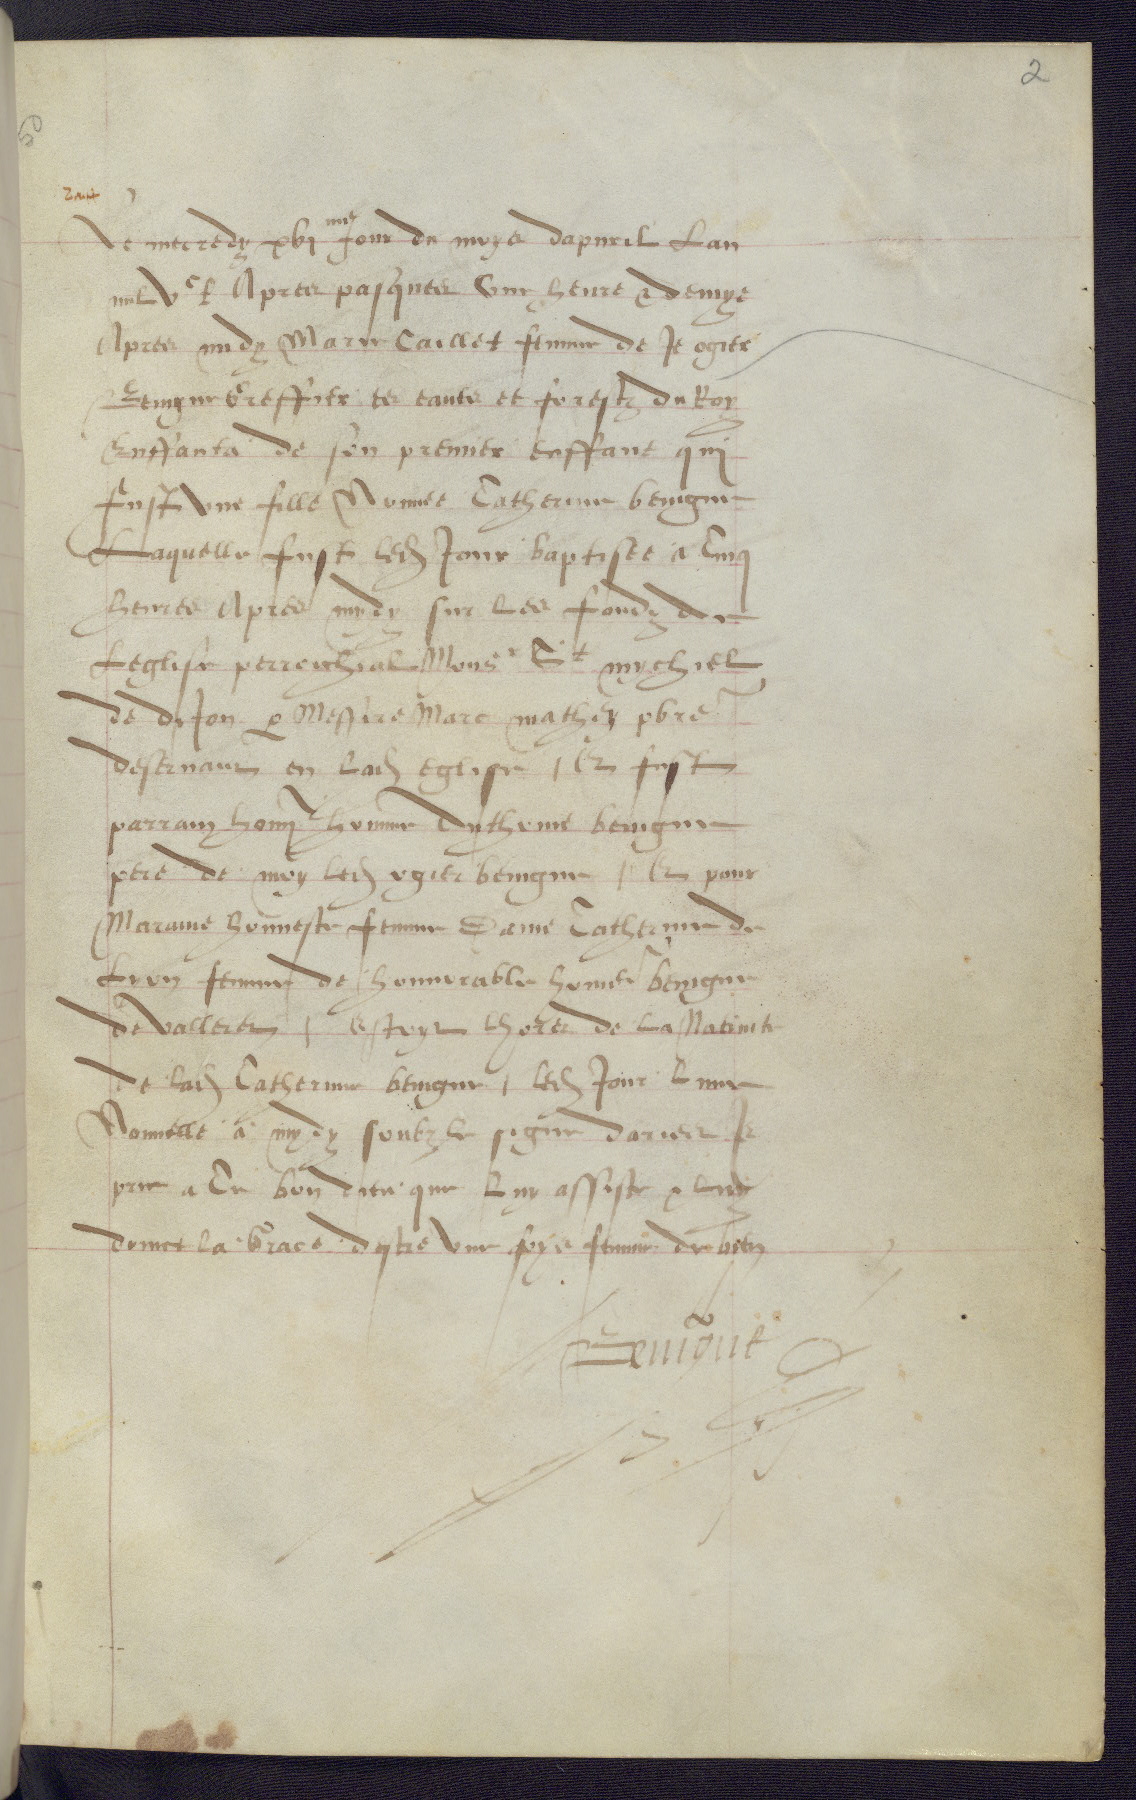 2
Le mecredy xvi me Jour du moys dapvril Lan
mil Vc L Apres pasques Une heure & demye
Apres midy Marie Caillet femme de Je ogier
Benigne Greffier es eaues et forestz du Roy
Enffanta de son premier enffant quj
fust Une fille Nomee Catherine benigne
Laquelle fust led Jour baptisee a Cinq
heures Apres mydy sur Les fondz de
Leglise perrochial Monsr St mychiel
de diJon p Messire Marc mathey pbre
desernant en lad eglise / Et fust
parrain honor homme Anthoine benigne
pere de moy led ogier benigne / Et pour
Maraine honneste femme Dame Catherine de
Lyon femme de honnorable home benigne
de Valleres / estoyt lhores de La Natiuite
de lad Catherine benigne / led Jour Lune
Nouvelle a mydy soubz le signe daries Je
prie a Ce bon dieu que Luy assiste & Luy
donnet la Grace destre Une foys femme de bien
Benigne